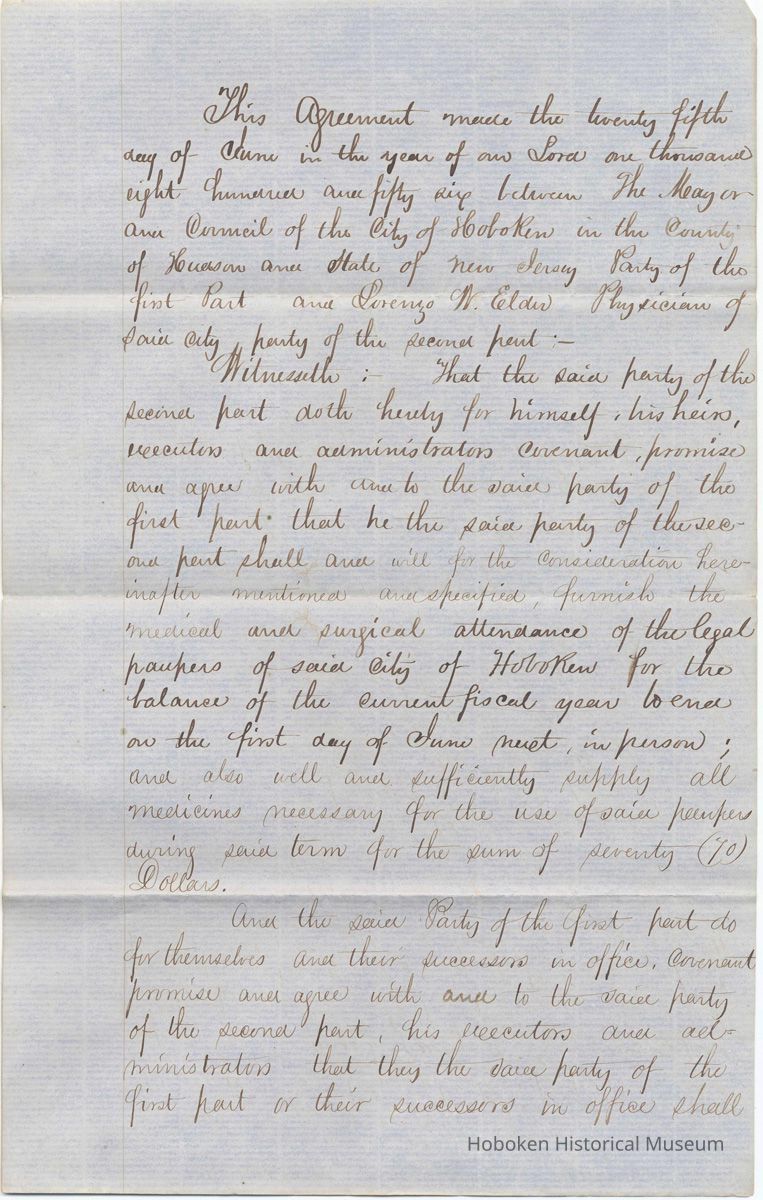 This Agreement made the twenty fifth
day of June in the year of our Lord one thousand
eight hundred and fifty six between The Mayor
and Council of the City of Hoboken in the County
of Hudson and State of New Jersey Party of the
first Part and Lorenzo W. Elder Physician of
said city party of the second part :-
Witnesseth :- That the said party of the
second part doth hereby for himself, his heirs,
executors and administrators covenant, promise
and agree with and to the said party of the
first part that he the said party of the sec-
ond part shall and will for the consideration here-
inafter mentioned and specified, furnish the
medical and surgical attendance of the legal
paupers of said city of Hoboken for the
balance of the current fiscal year to end
on the first day of June next, in person ;
and also well and sufficiently supply all
medicines necessary for the use of said paupers
during said term for the sum of seventy (70)
Dollars.
And the said Party of the first part do
for themselves and their successors in office, covenant
promise and agree with and to the said party
of the second part, his executors and ad-
ministrators that they the said party of the
first part or their successors in office shall
Hoboken Historical Museum